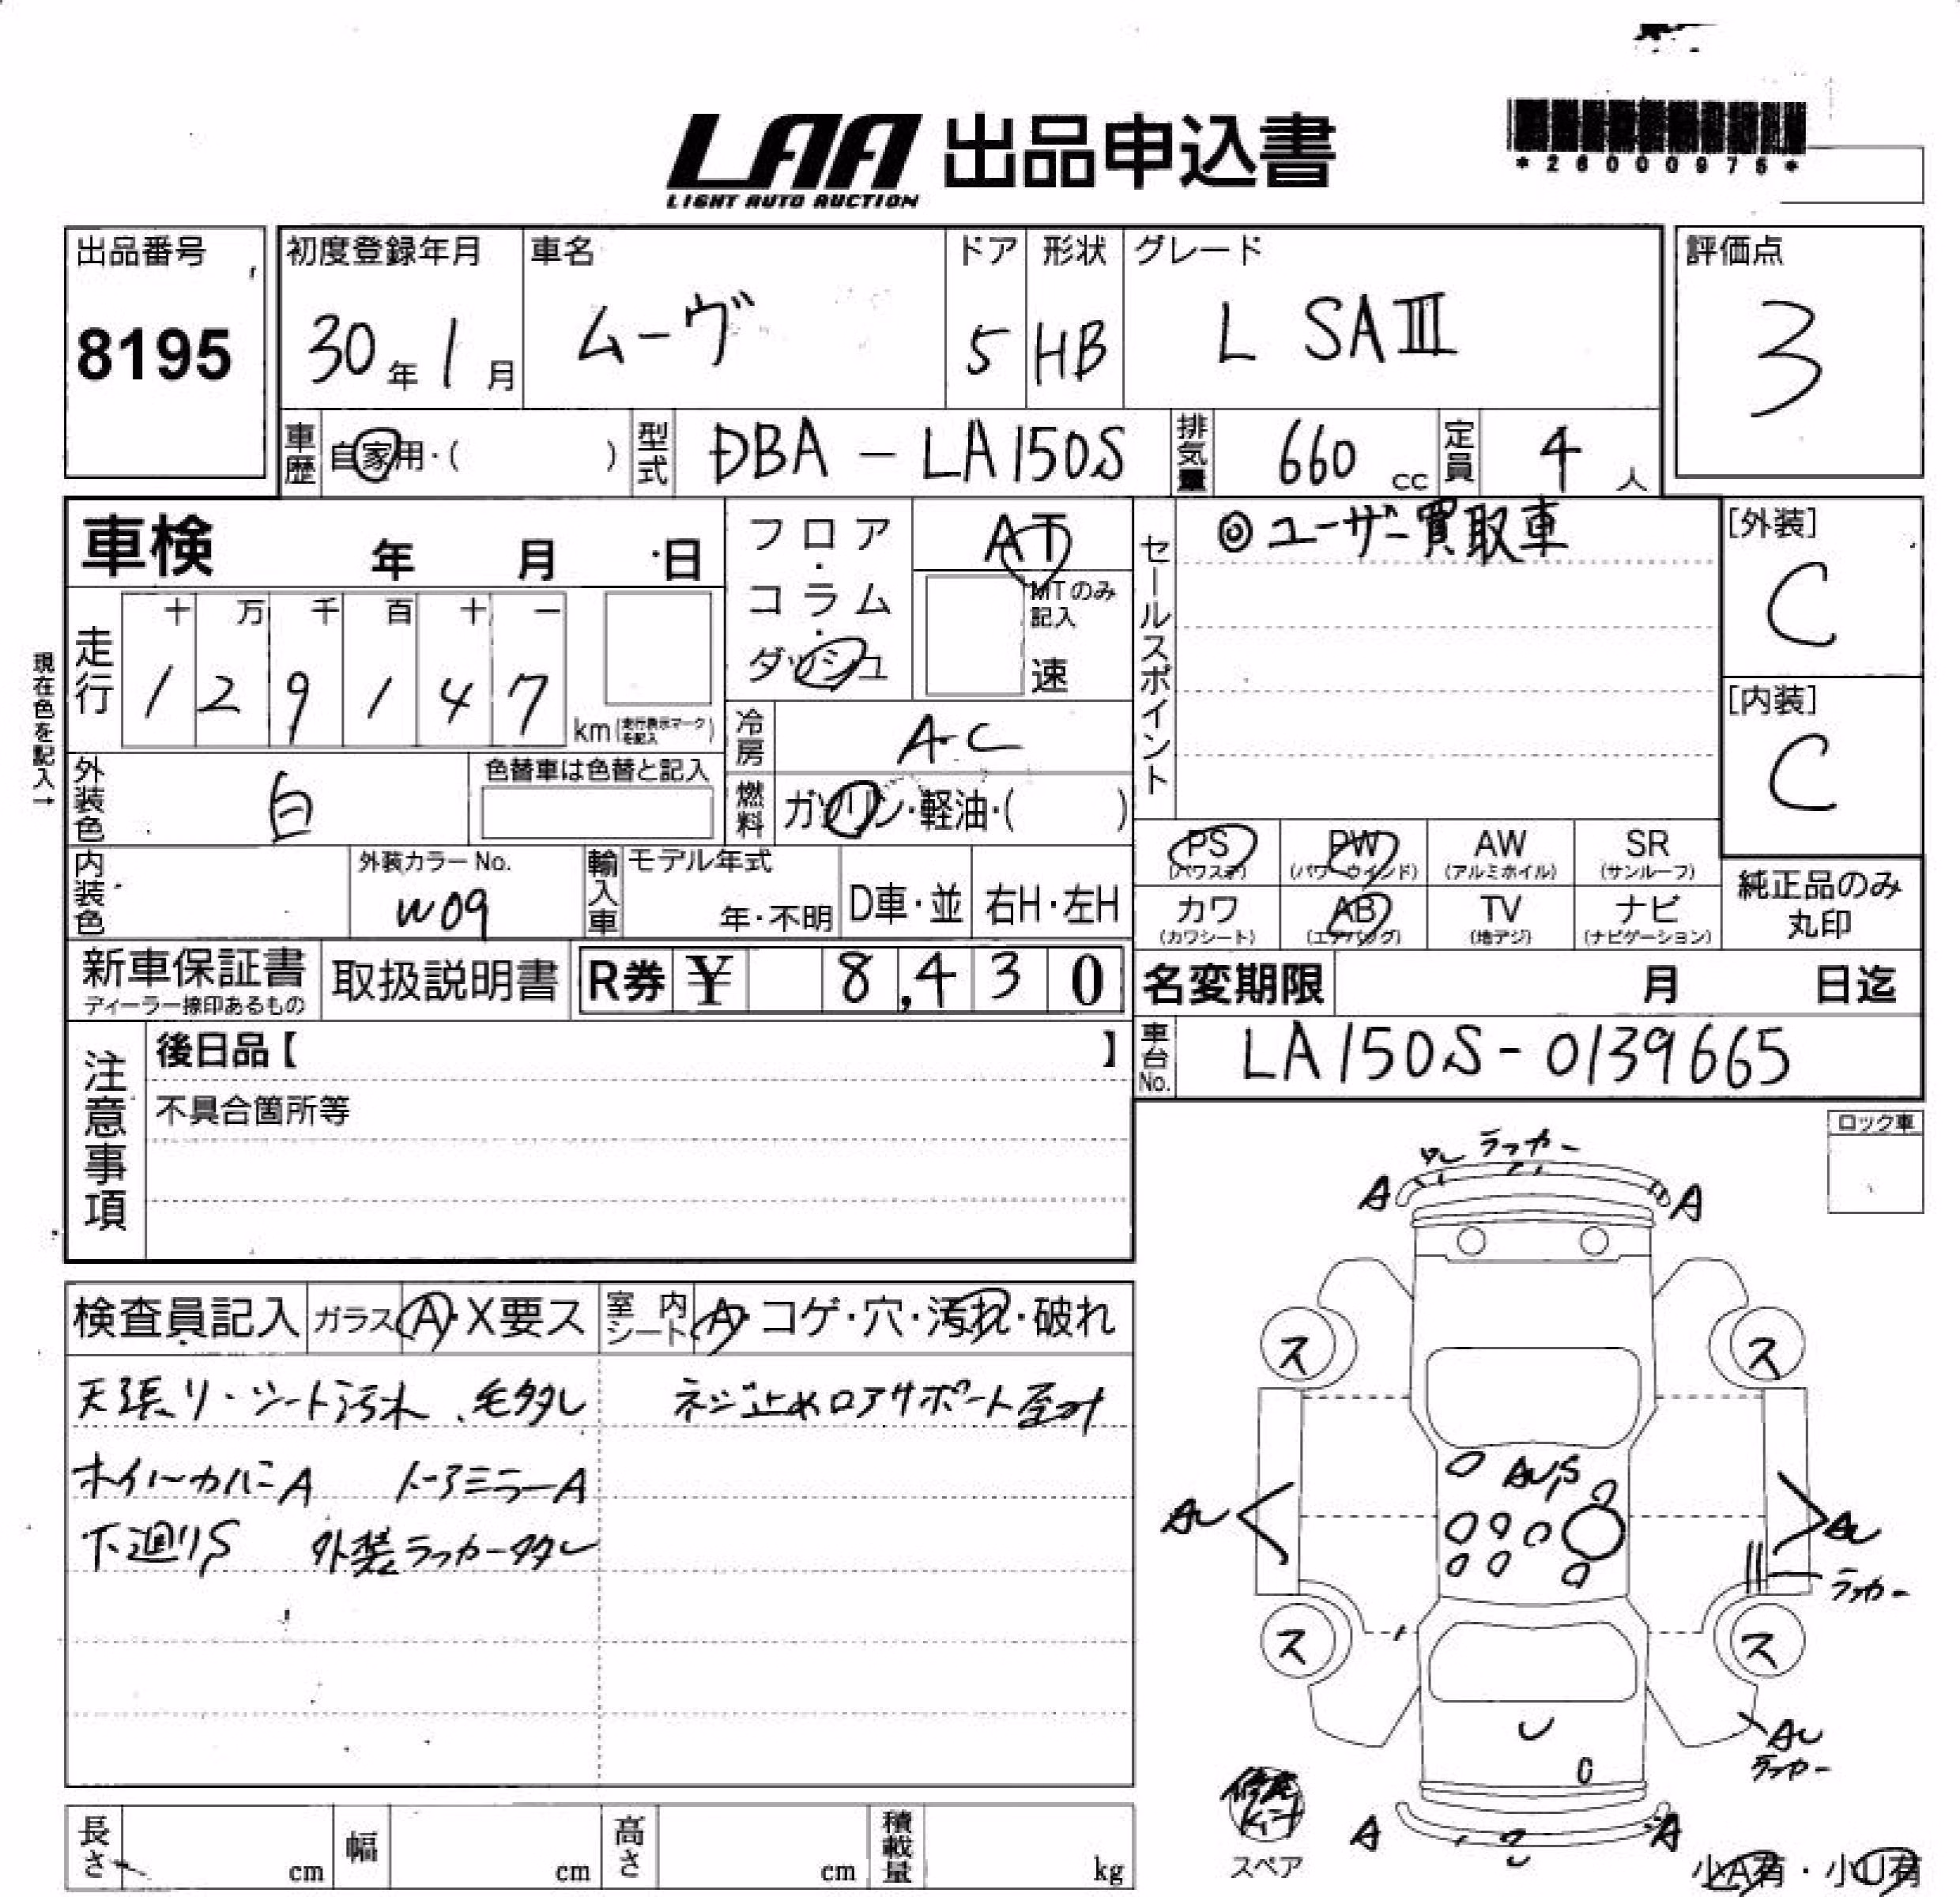 LAA 出品申込書
LIGHT AUTO AUCTION
*26000976*
出品番号
8195
初度登録年月
30年1月
車名
ムーヴ
ドア
5
形状
HB
グレード
L SAⅢ
評価点
3
車歴
自家用・( )
型式
DBA-LA150S
排気量
660 cc
定員
4 人
車検 年 月 日
フロア・コラム・ダッシュ
AT
MTのみ記入
速
セールスポイント
◎ユーザー買取車
[外装]
C
[内装]
C
現在色を記入→
走行
十 万 千 百 十 一
1 2 9 1 4 7
km(走行表示マークを記入)
冷房
AC
燃料
ガソリン・軽油・( )
外装色
白
色替車は色替と記入
内装色
外装カラーNo.
W09
輸入車
モデル年式
年・不明
D車・並
右H・左H
PS
(パワステ)
PW
(パワーウインド)
AW
(アルミホイル)
SR
(サンルーフ)
カワ
(カワシート)
AB
(エアバッグ)
TV
(地デジ)
ナビ
(ナビゲーション)
純正品のみ
丸印
新車保証書
ディーラー捺印あるもの
取扱説明書
R券 ¥ 8,430
名変期限 月 日迄
車台No.
LA150S-0139665
注意事項
後日品【 】
不具合箇所等
ロック車
検査員記入
ガラス A・X要ス
室内シート A・コゲ・穴・汚れ・破れ
天張り・シート汚れ、毛多し
ネジ止めロアサポート歪み
ホイールカバーA ドアミラーA
下廻りS 外装ラッカー多し
ラッカー
A
A
ス
ス
AU
AU
ラッカー
ス
ス
AU
ラッカー
A
A
スペア
小A有・小U有
長さ cm
幅 cm
高さ cm
積載量 kg